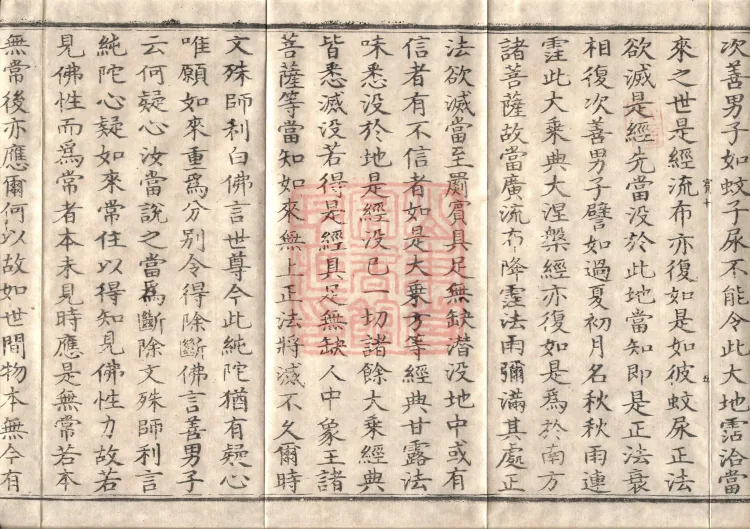 次善男子如蚊子尿不能令此大地霑洽當
來之世是經流布亦復如是如彼蚊尿正法
欲滅是經先當没於此地當知即是正法衰
相復次善男子譬如過夏初月名秋秋雨連
霔此大乗典大涅槃經亦復如是爲於南方
諸菩薩故當廣流布降霔法雨彌滿其處正
法欲滅當至罽賓具足無缺潜没地中或有
信者有不信者如是大乗方等經典甘露法
味悉没於地是經没已一切諸餘大乗經典
皆悉滅没若得是經具足無缺人中象王諸
菩薩等當知如來無上正法將滅不久爾時
文殊師利白佛言世尊今此純陀猶有疑心
唯願如來重爲分别令得除斷佛言善男子
云何疑心汝當説之當爲斷除文殊師利言
純陀心疑如來常住以得知見佛性力故若
見佛性而爲常者本未見時應是無常若本
無常後亦應爾何以故如世間物本無今有